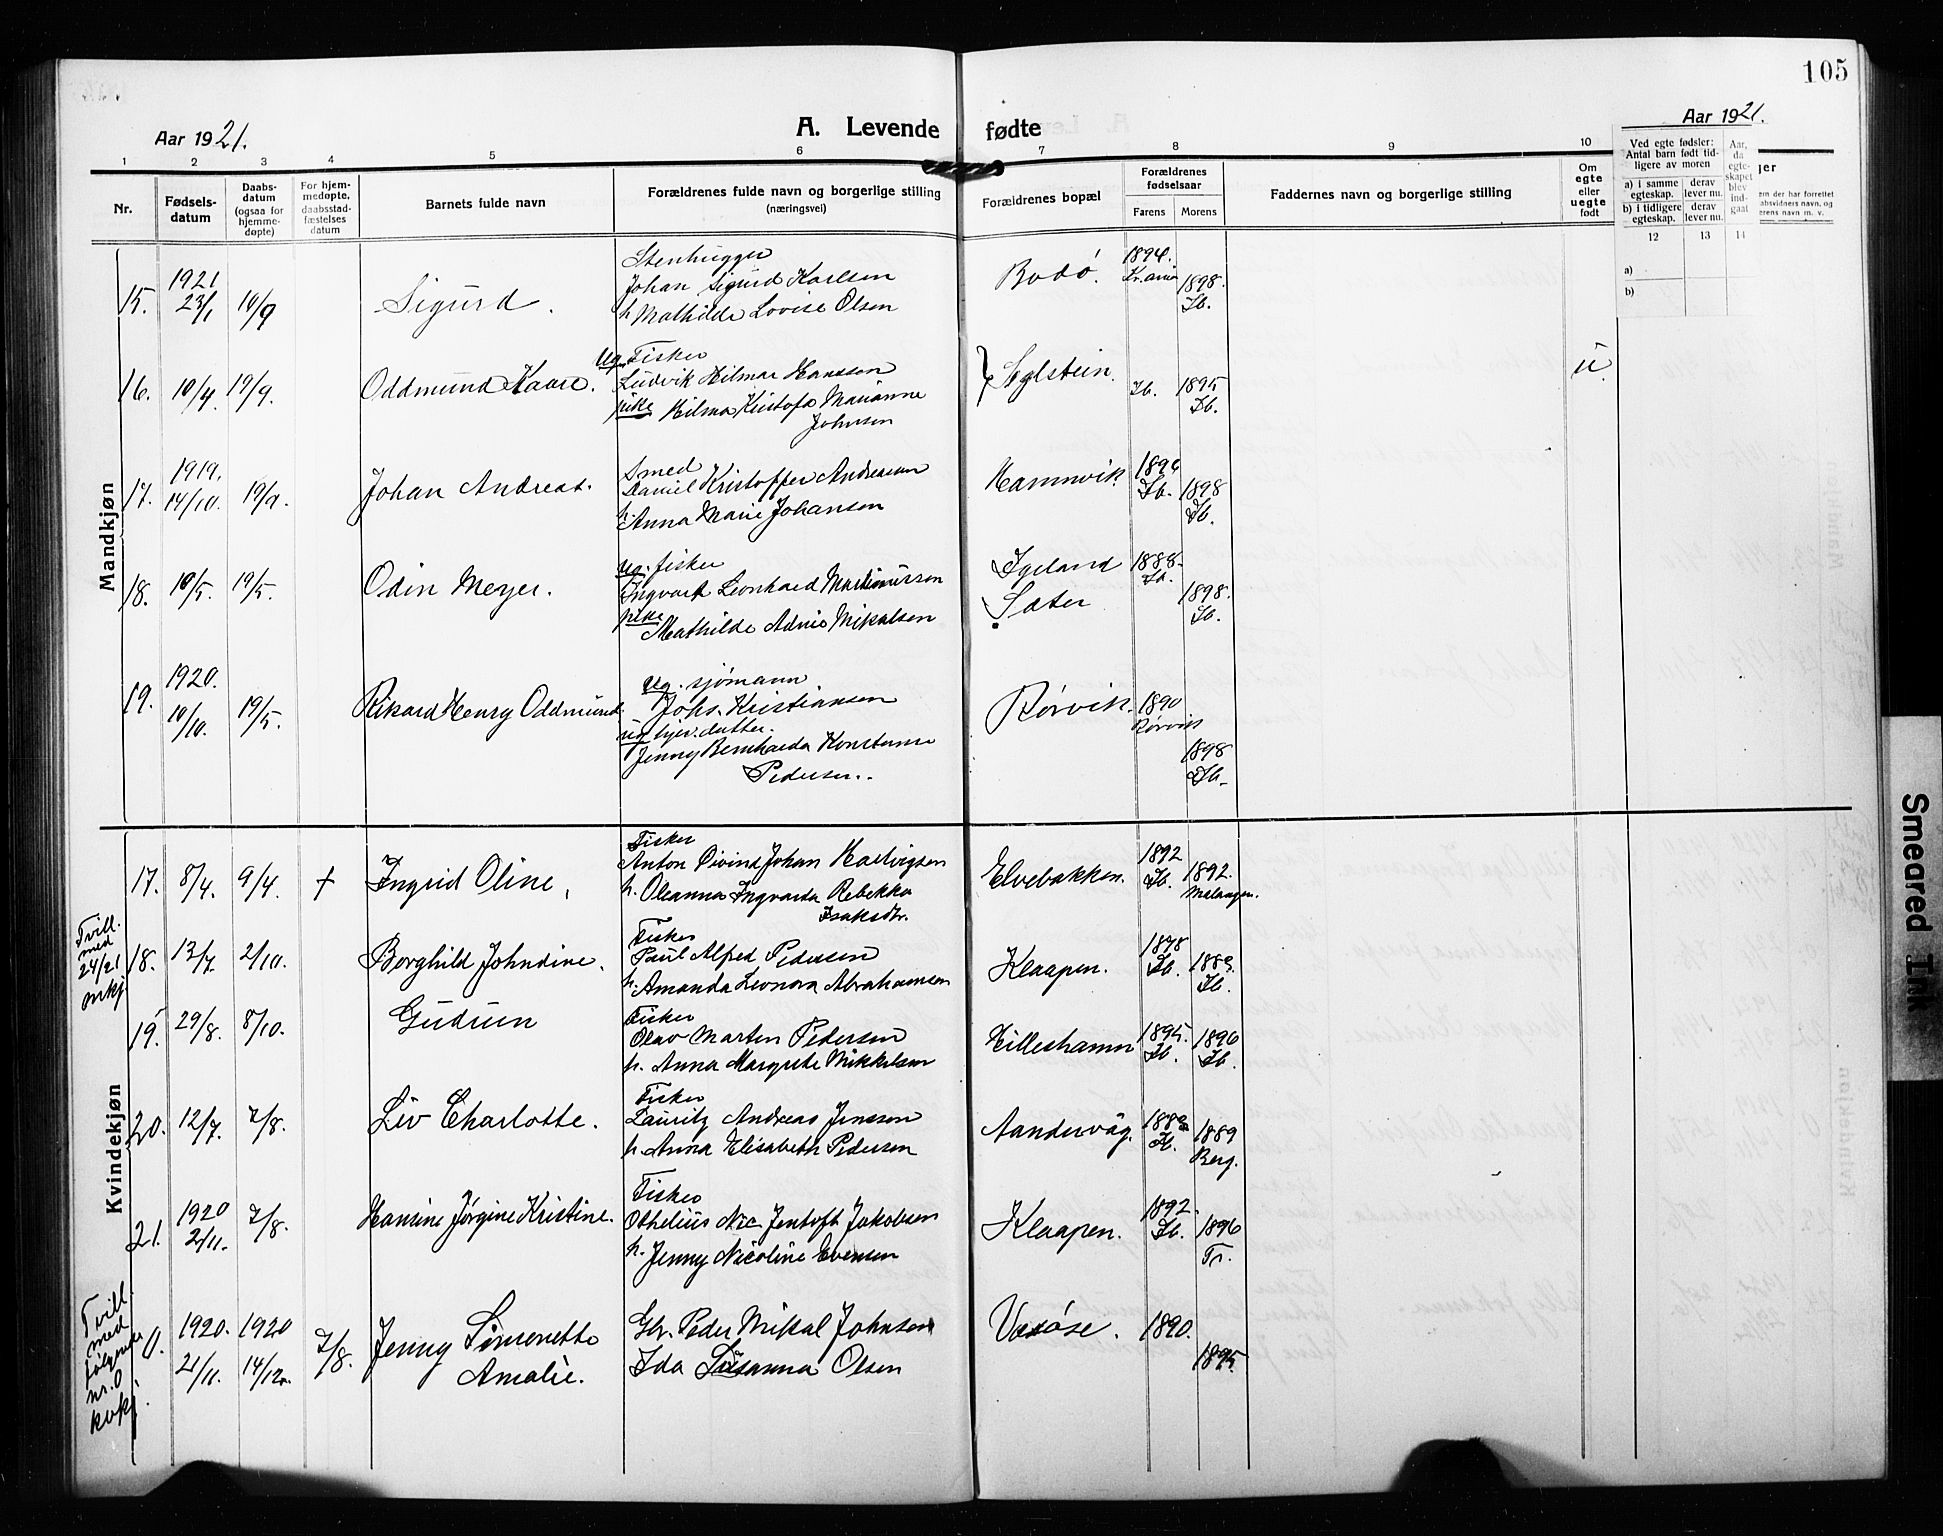 105
Aar 1921.
A. Levende fødte
Aar 1921.
1 2 3 4 5 6 7 8 9 10
Nr.
Fødsels-
datum
Daabs-
datum
(ogsaa for
hjemme-
døpte)
For hjem-
medøpte,
daabsstad-
fæstelses
datum
Barnets fulde navn
Forældrenes fulde navn og borgerlige stilling
(næringsvei)
Forældrenes bopæl
Forældrenes
fødselsaar
Farens Morens
Faddernes navn og borgerlige stilling
Om
egte
eller
uegte
født
Ved egte fødsler:
Antal barn født tid-
ligere av moren
a) i samme
egteskap.
derav
lever nu.
b) i tidligere
egteskap.
derav
lever nu.
Aar,
da
egte-
skapet
blev
ind-
gaat
12 13 14
a)
b)
ger
em der har forrettet
absvidners navn, og
erens navn m. v.
Mandkjøn
15. 1921 23/1 10/9 Sigurd.
Stenhugger
Johan Sigurd Karlsen
h Mathilde Lovise Olsen
Bodø. 1894. Kr.ania 1898. Ib.
16. 10/4 19/9. Oddmund Kaare.
Ug. Fisker
Ludvik Hilmar Hansson
pike Hilma Kristofa Marianne
Johnsen
Seglstein. Ib. 1895 Ib. u.
17. 1919. 14/10. 19/9. Johan Andreas.
Smed
Daniel Kristoffer Andreassen
h. Anna Marie Johansen
Hamnvik. Ib. 1898 Ib.
18. 10/5. 19/5. Odin Meyer.
Ug. fisker
Ingvart Leonhard Martinussen
pike Mathilde Mikalsen
Igeland 1888.
Sæter 1898. Ib.
19. 1920. 10/10. 19/5. Rikard Henry Oddmund.
Ug. sjømann
Johs. Kristiansen
ug. hjev. datter.
Jenny Bernharda Konstanse
Pedersen.
Rørvik. 1890 Rørvik 1898 Ib.
Kvindekjøn
17. 8/4. 9/4. † Ingrid Oline.
Fisker
Anton Øivind Johan Hartvigsen
h. Oleanna Ingvarda Rebekka
Isaksdtr.
Elvebakken. 1892 Ib. 1892. Malangen.
Tvill.
med
24/21
mkj
18. 13/7. 2/10. Borghild Johndine.
Fisker
Paul Alfred Pedersen
h. Amanda Leonora Abrahamsen
Klaapen. 1878 Ib. Ib.
19. 29/8. 8/10. Gudrun
Fisker
Olav Marten Pedersen
h. Anna Margrete Mikkelsen
Lilleshamn 1895. Ib. 1896 Ib.
20. 12/7. 7/8. Liv Charlotte.
Fisker
Lauritz Andreas Jenssen
h. Anna Elisabeth Pedersen
Aandervåg. Ib. 1889 Berg.
21. 1920 2/11. 7/8. Hansine Jørgine Kristine.
Fisker
Othelius Nic Jentoft Jakobsen
h. Jenny Nicoline Evensen
Klaapen. 1892. Ib. 1896 Tr.
Tvill.
med
følgende
nr. 0
kvkj.
0. 1920. 21/11. 1920 14/12. 7/8. Jenny Simonette
Amalie.
Gbr. Peder Mikal Johnsen
Ida Susanna Olsen
1890. 1895.
Smeared Ink